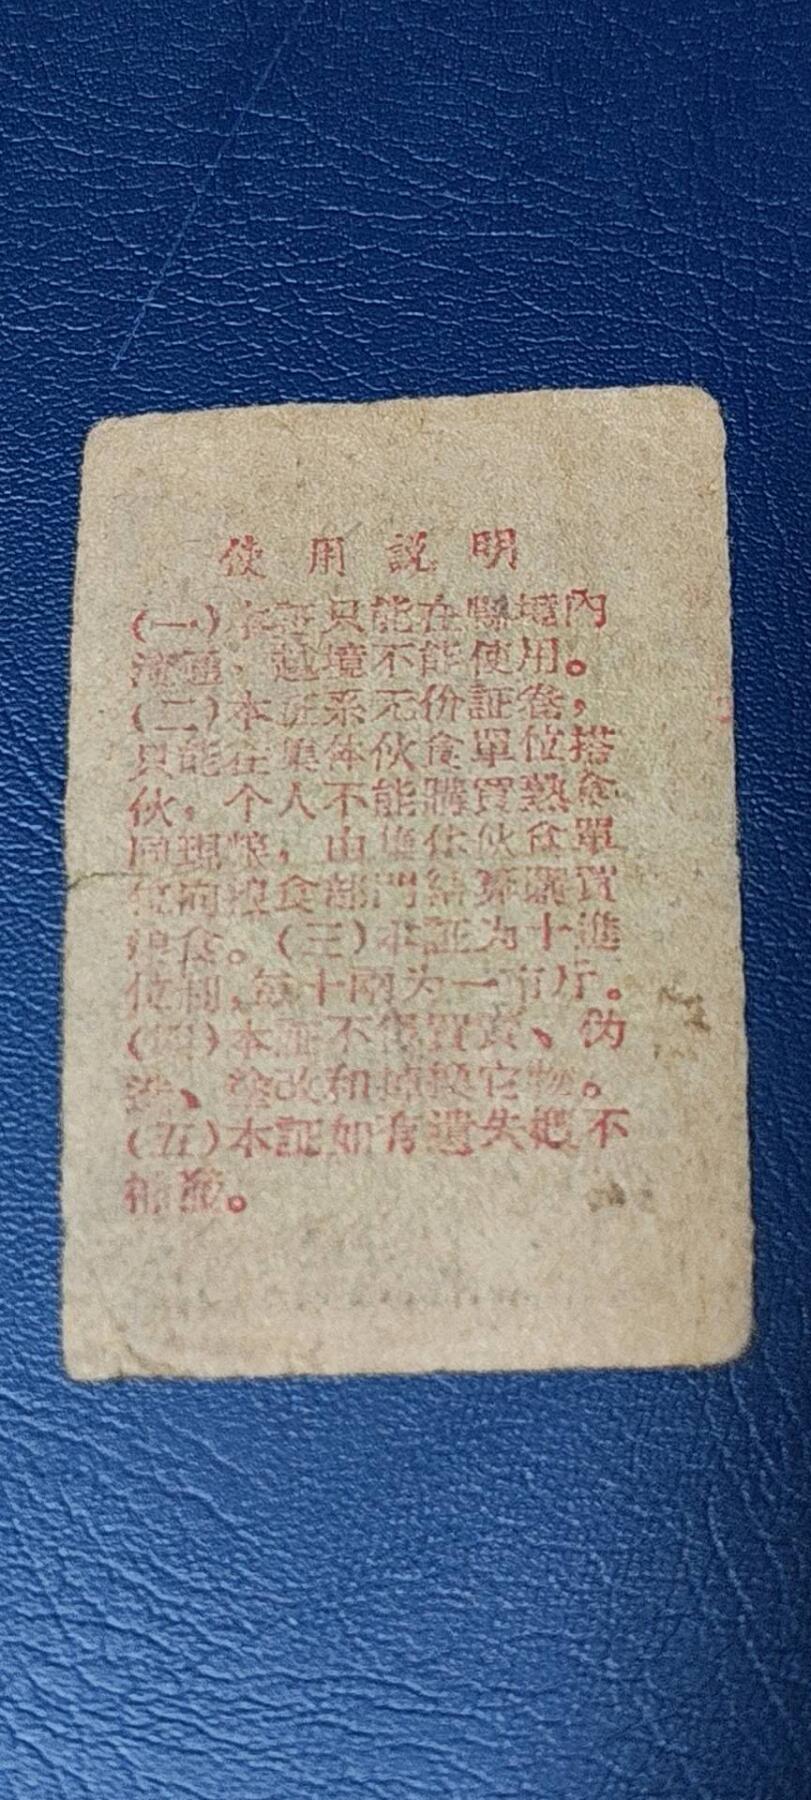 使用説明
(一)本証只能在縣境內
流通、越境不能使用。
(二)本証系无价証券,
只能在集体伙食單位搭
伙,个人不能購買熟食
同現粮,由集体伙食單
位向粮食部門結算購買
粮食。(三)本証为十進
位制,每十兩为一市斤。
(四)本証不能買賣、伪
造、塗改和掉換它物。
(五)本証如有遺失概不
補發。